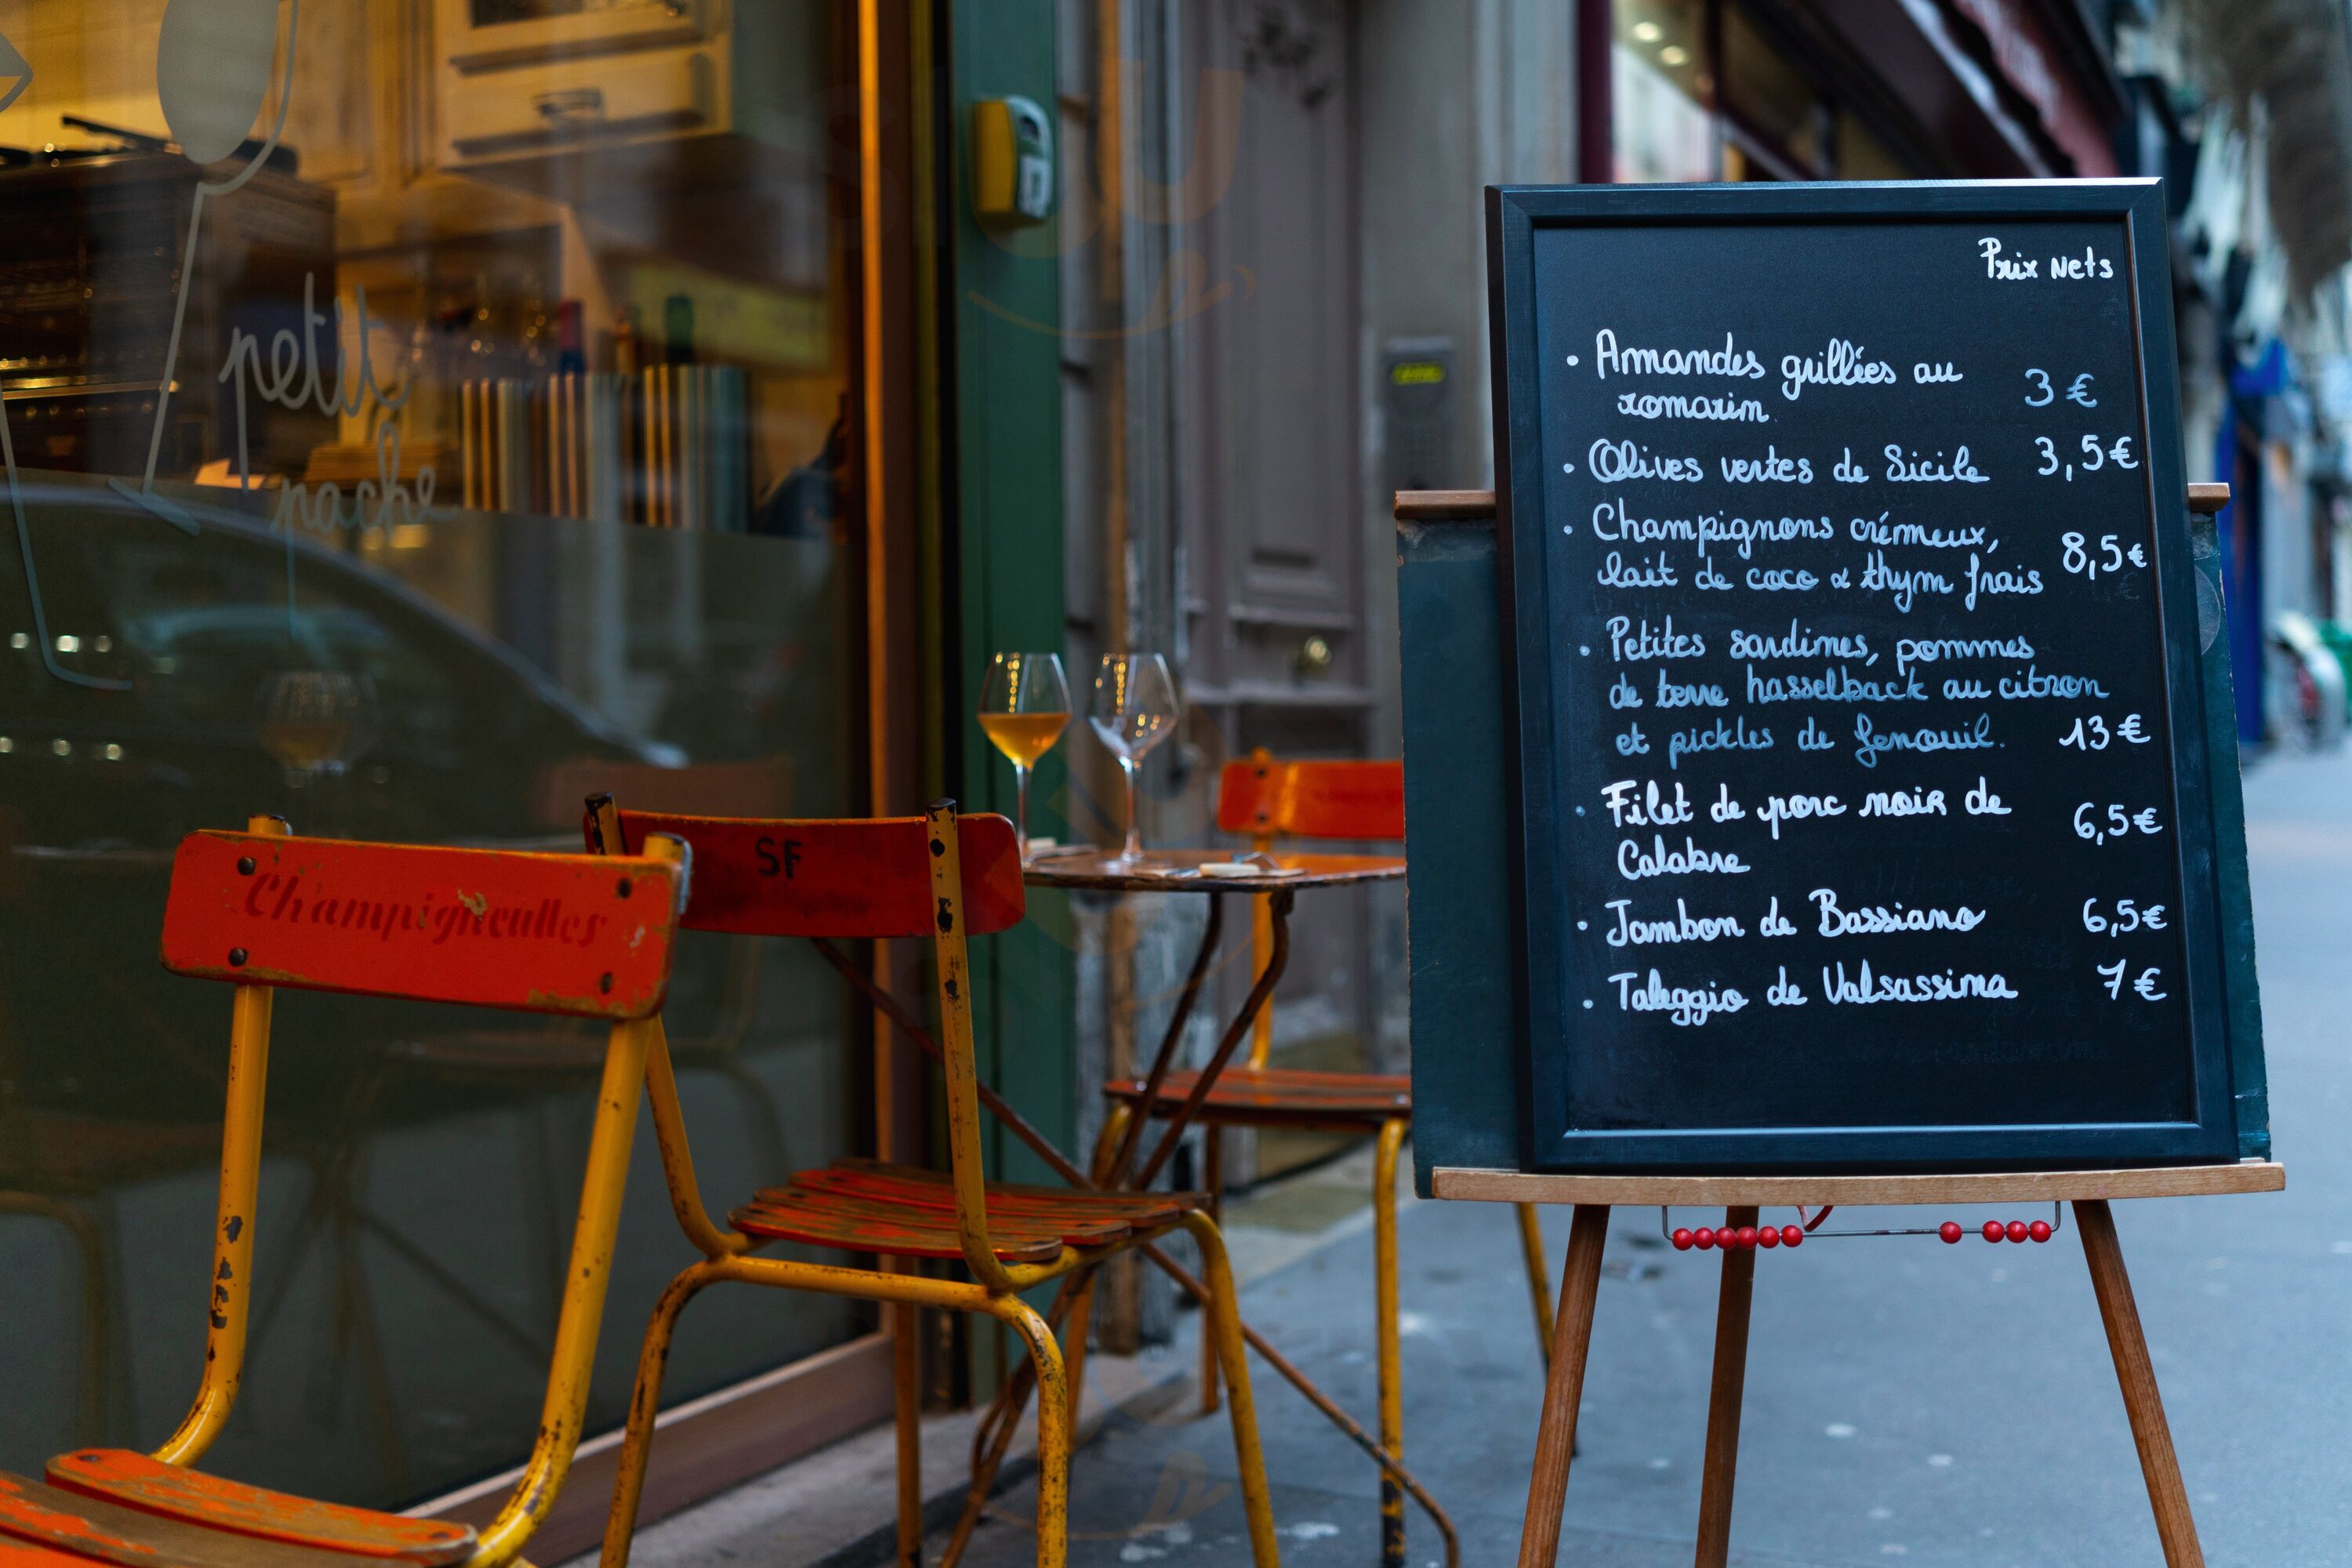 petit
pache
Champigneulles
SF
Prix Nets
• Amandes grillées au
romarin
3 €
• Olives vertes de Sicile 3,5€
• Champignons crémeux,
lait de coco & thym frais 8,5€
• Petites sardines, pommes
de terre hasselback au citron
et pickles de fenouil. 13€
• Filet de porc noir de
Calabre
6,5€
• Jambon de Bassiano 6,5€
• Taleggio de Valsassina 7€